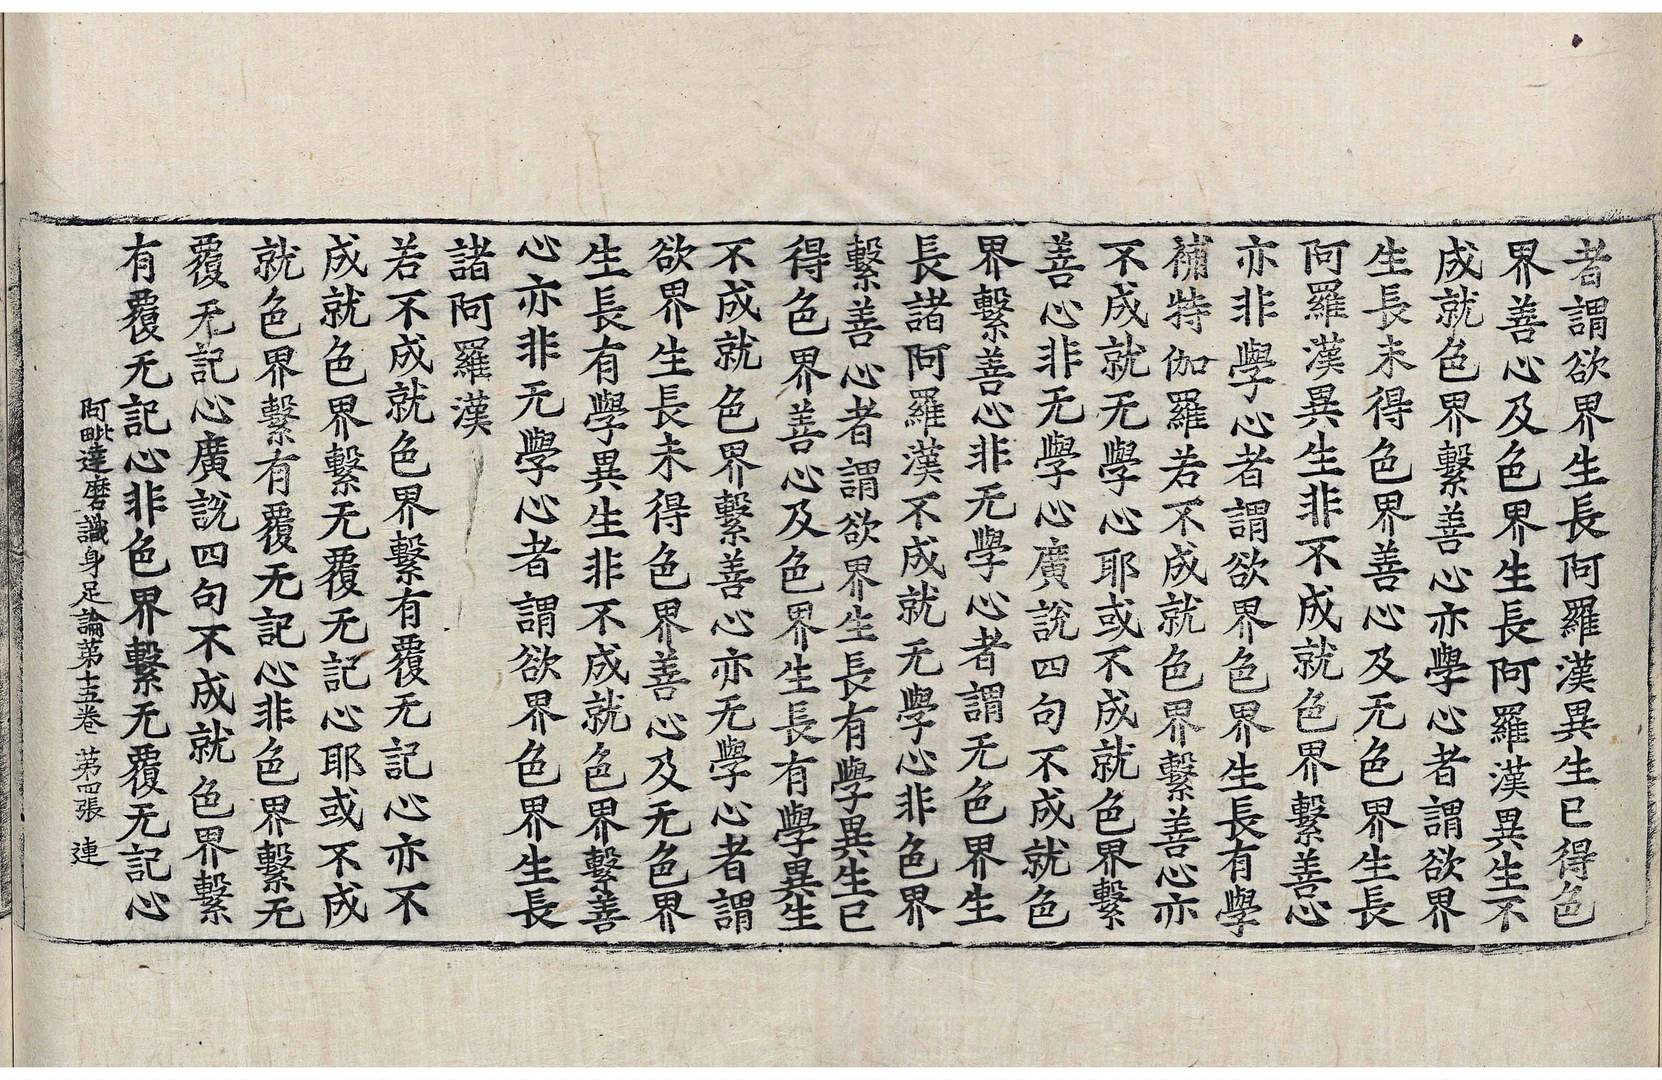 者謂欲界生長阿羅漢異生已得色
界善心及色界生長阿羅漢異生不
成就色界繫善心亦學心者謂欲界
生長未得色界善心及无色界生長
阿羅漢異生非不成就色界繫善心
亦非學心者謂欲界色界生長有學
補特伽羅若不成就色界繫善心亦
不成就无學心耶或不成就色界繫
善心非无學心廣說四句不成就色
界繫善心非无學心者謂无色界生
長諸阿羅漢不成就无學心非色界
繫善心者謂欲界生長有學異生已
得色界善心及色界生長有學異生
不成就色界繫善心亦无學心者謂
欲界生長未得色界善心及无色界
生長有學異生非不成就色界繫善
心亦非无學心者謂欲界色界生長
諸阿羅漢
若不成就色界繫有覆无記心亦不
成就色界繫无覆无記心耶或不成
就色界繫有覆无記心非色界繫无
覆无記心廣說四句不成就色界繫
有覆无記心非色界繫无覆无記心
阿毗達磨識身足論第十五卷 第四張 連